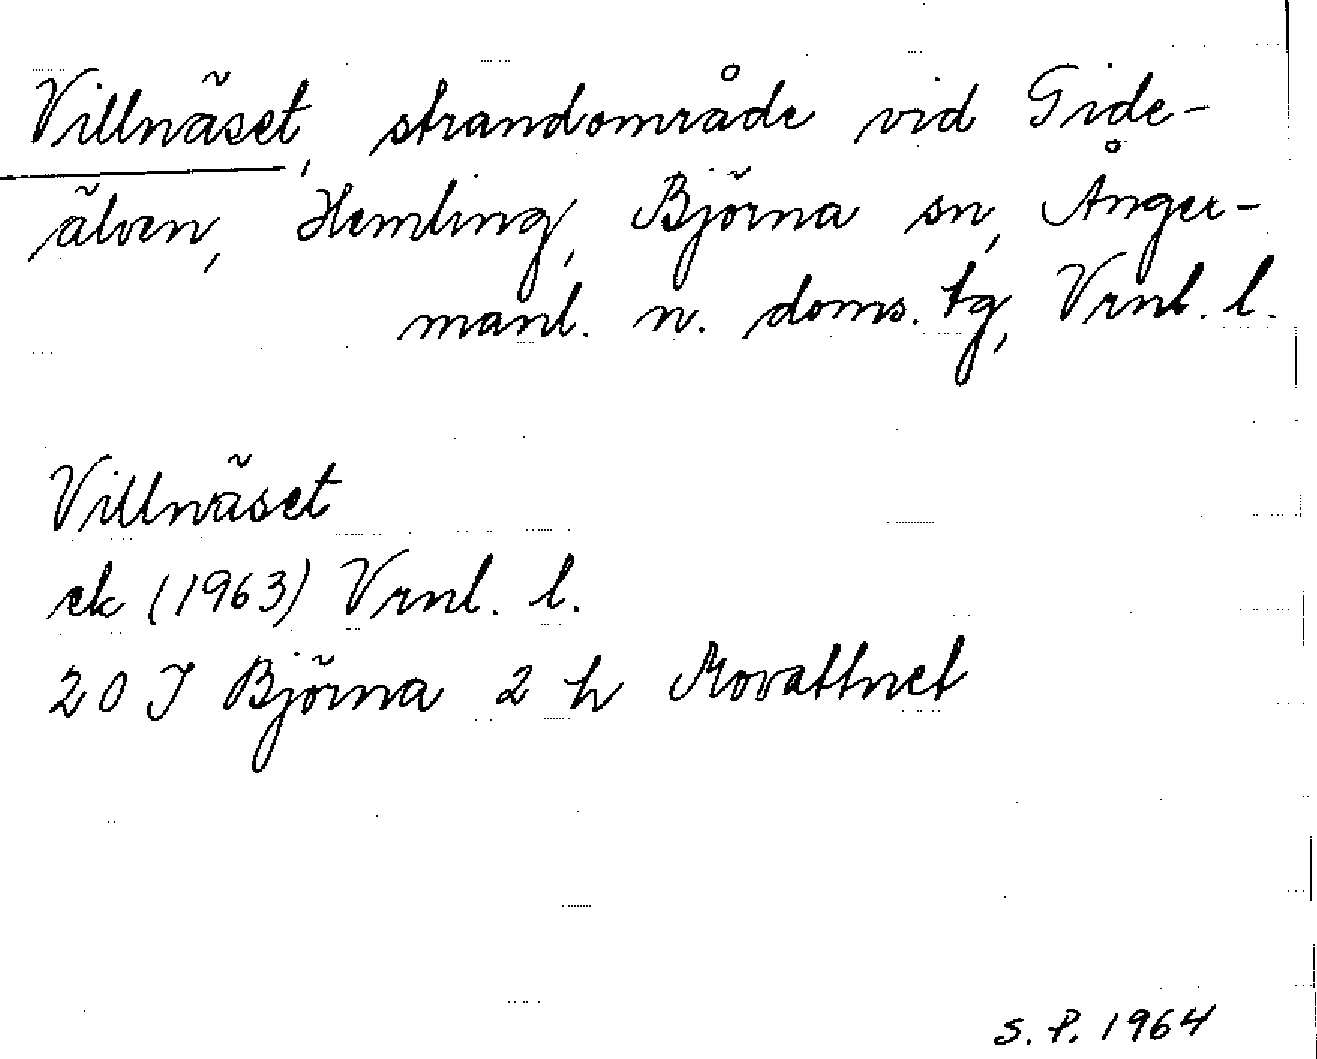 Villnäset, strandområde vid Gide-
älven, Hemling, Björna sn, Ånger-
manl. n. doms. tg, Vrnl. l.
Villnäset
ek (1963) Vrnl. l.
20 J Björna 2 h Movattnet
S. P. 1964